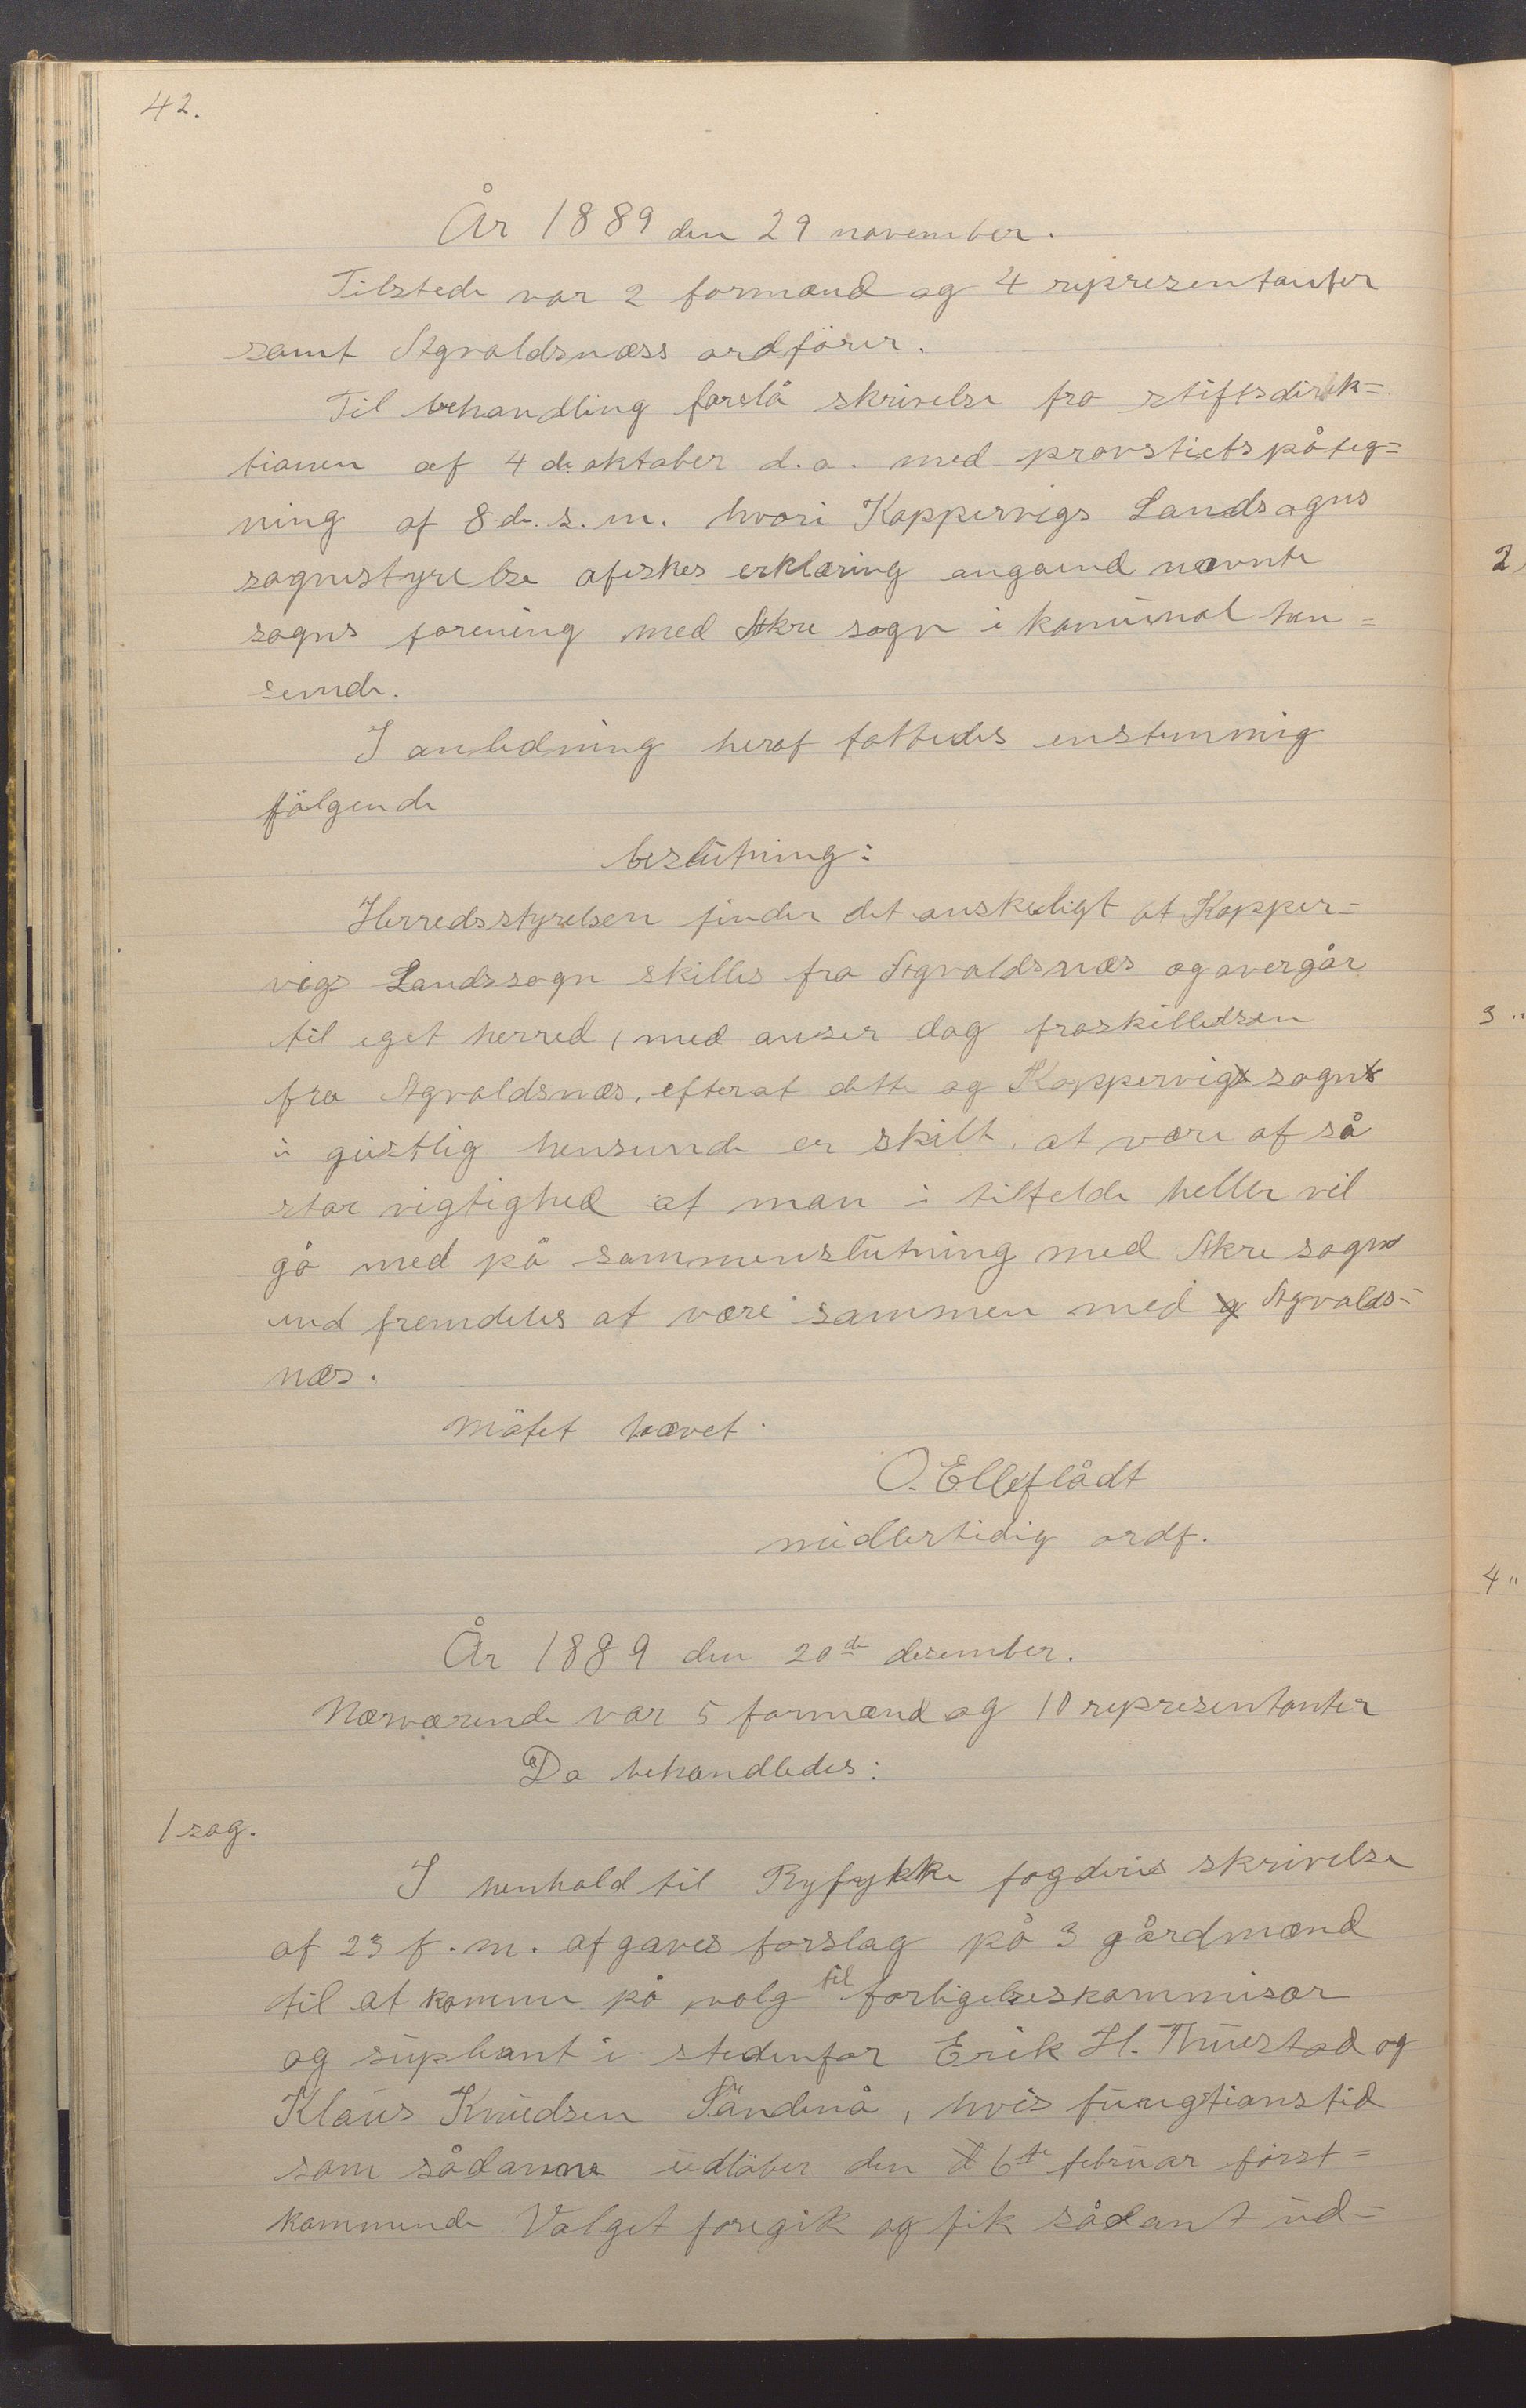 42.
År 1889 den 29 november.
Tilstede var 2 formænd og 4 representanter
samt Agvaldsnæss ordförer.
Til behandling forelå skrivelse fra stiftsdirek=
tionen af 4de oktober d.a. med provstiets påteg=
ning af 8 d. s. m. hvori Koppervigs Landsogns
sognestyrelse afeskes erklæring angaend nævnte
sogns forening med Akre sogn i komunal hen=
seende.
I anledning heraf fattedes enstemmig
fölgende
beslutning:
Herredsstyrelsen finder det önskeligt at Kopper=
vigs Landssogn skilles fra Agvaldsnæs og overgår
til eget herred, med anser dog fraskillelsen
fra Agvaldsnæs, efterat dette og Koppervigs sogns
i geistlig henseende er skilt, at være af så
stor vigtighed at man i tilfelde heller vil
gå med på sammenslutning med Akre sogn
end fremdeles at være sammen med g Agvalds=
næs.
Mötet hævet.
O. Elleflådt
midlertidig ordf.
År 1889 den 20de desember.
Nærværende var 5 formænd og 10 representanter
Da behandledes:
1 sag.
I henhold til Ryfylke fogderis skrivelse
af 23 f. m. afgaves forslag på 3 gårdmænd
til at komme på valg til forligelseskommisær
og supleant i stedenfor Erik H. Tuestad og
Klaus Knudsen Sandenå, hvis fungtionstid
som sådanne udlöber den 6te februar först=
kommende Valget foregik og fik sådant ud=
2
3 "
4 "